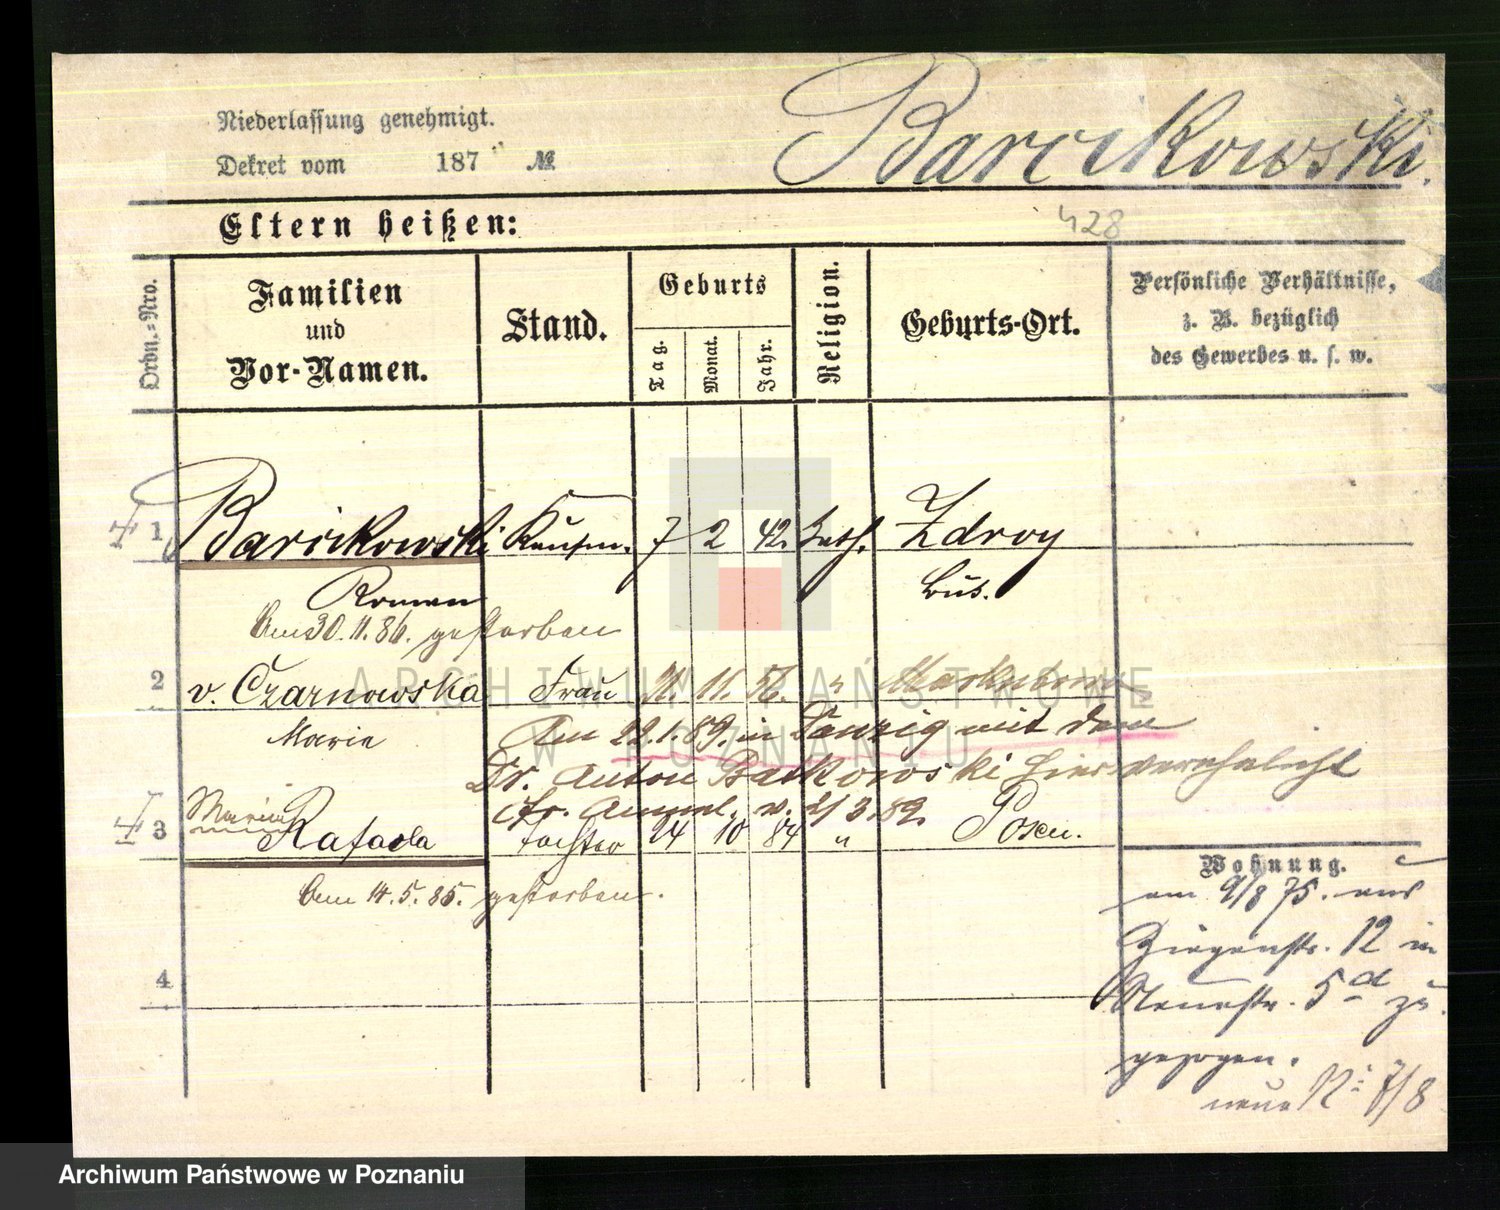 Niederlassung genehmigt.
Dekret vom 187 №
Barcikowski.
Eltern heißen:
428
Ordn.=Nro.
Familien
und
Vor-Namen.
Stand.
Geburts
Tag.
Monat.
Jahr.
Religion.
Geburts-Ort.
Persönliche Verhältnisse,
z. B. bezüglich
des Gewerbes u. s. w.
1 Barcikowski Kaufm. 7 2 42. kath. Zdroy
Roman Buk.
Am 30.11.86. gestorben
2 v. Czarnowska Frau 11. 56. "
Maria
Am 22.1.89. in Danzig mit dem
Dr. Anton hier verehelicht
v. 2/3.89.
3 Rafaela Tochter 24 10 84 " Posen.
Am 14.5.85. gestorben.
4
Wohnung.
am 9/8 75. aus
Ziegenstr. 12 in
Neuestr. 5d zu
gezogen.
neue No 7/8
ARCHIWUM PAŃSTWOWE
W POZNANIU
Archiwum Państwowe w Poznaniu